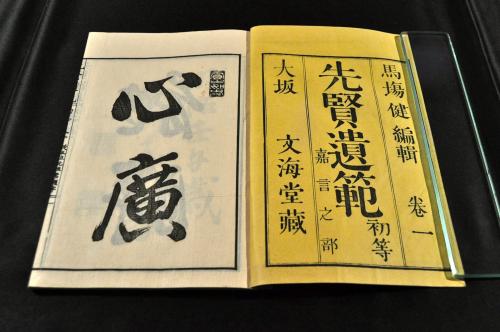 馬塲健編輯 卷一
先賢遺範 初等
嘉言之部
大坂 文海堂藏
心廣